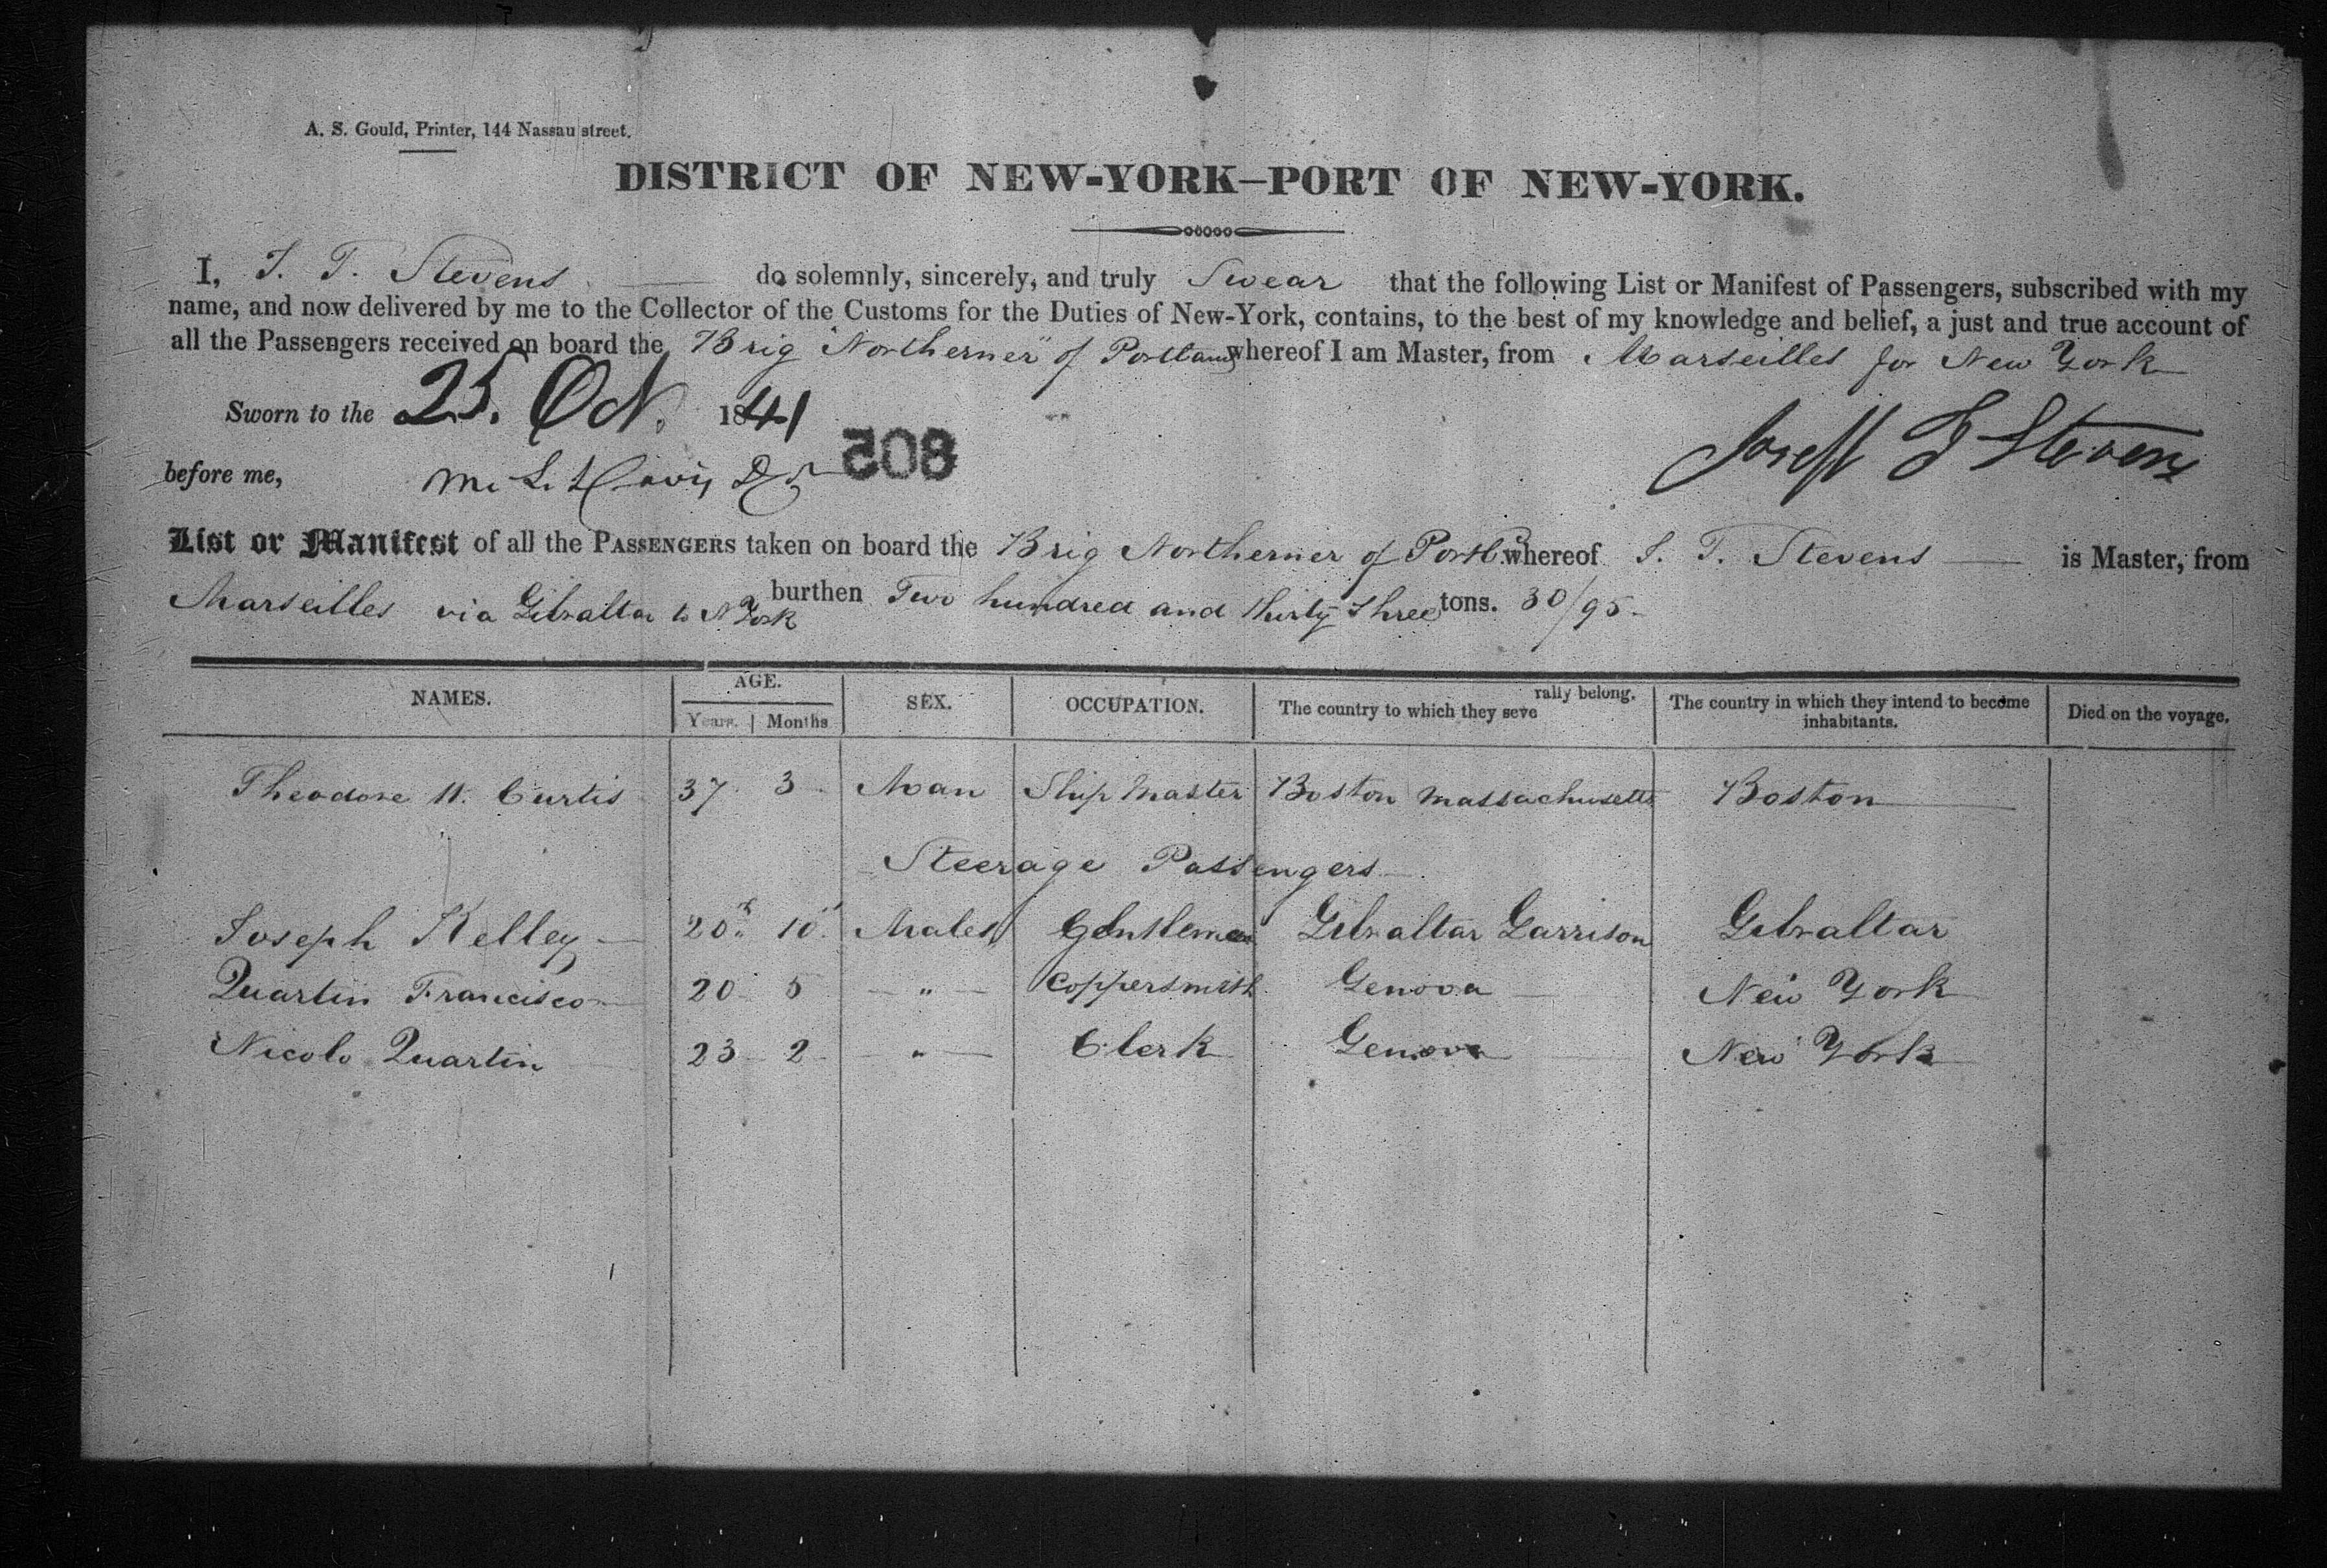 A. S. Gould, Printer, 144 Nassau street.
DISTRICT OF NEW-YORK—PORT OF NEW-YORK.
I, J. T. Stevens do solemnly, sincerely, and truly Swear that the following List or Manifest of Passengers, subscribed with my
name, and now delivered by me to the Collector of the Customs for the Duties of New-York, contains, to the best of my knowledge and belief, a just and true account of
all the Passengers received on board the Brig "Northerner" of Portland whereof I am Master, from Marseilles for New York
Sworn to the 25. Oct. 1841
Joseph T Stevens
before me, 805
List or Manifest of all the PASSENGERS taken on board the Brig Northerner of Portld whereof J. T. Stevens is Master, from
Marseilles via Gibraltar to N York burthen Two hundred and thirty three tons. 30/95
NAMES. AGE. SEX. OCCUPATION. The country to which they severally belong. The country in which they intend to become inhabitants. Died on the voyage.
Years. Months
Theodore H. Curtis 37 3 Man Ship Master Boston Massachusetts Boston
Steerage Passengers
Joseph Kelley 20 10 Males Gentleman Gibraltar Garrison Gibraltar
Quartin Francisco 20 5 " Coppersmith Genova New York
Nicolo Quartin 23 2 " Clerk Genova New York